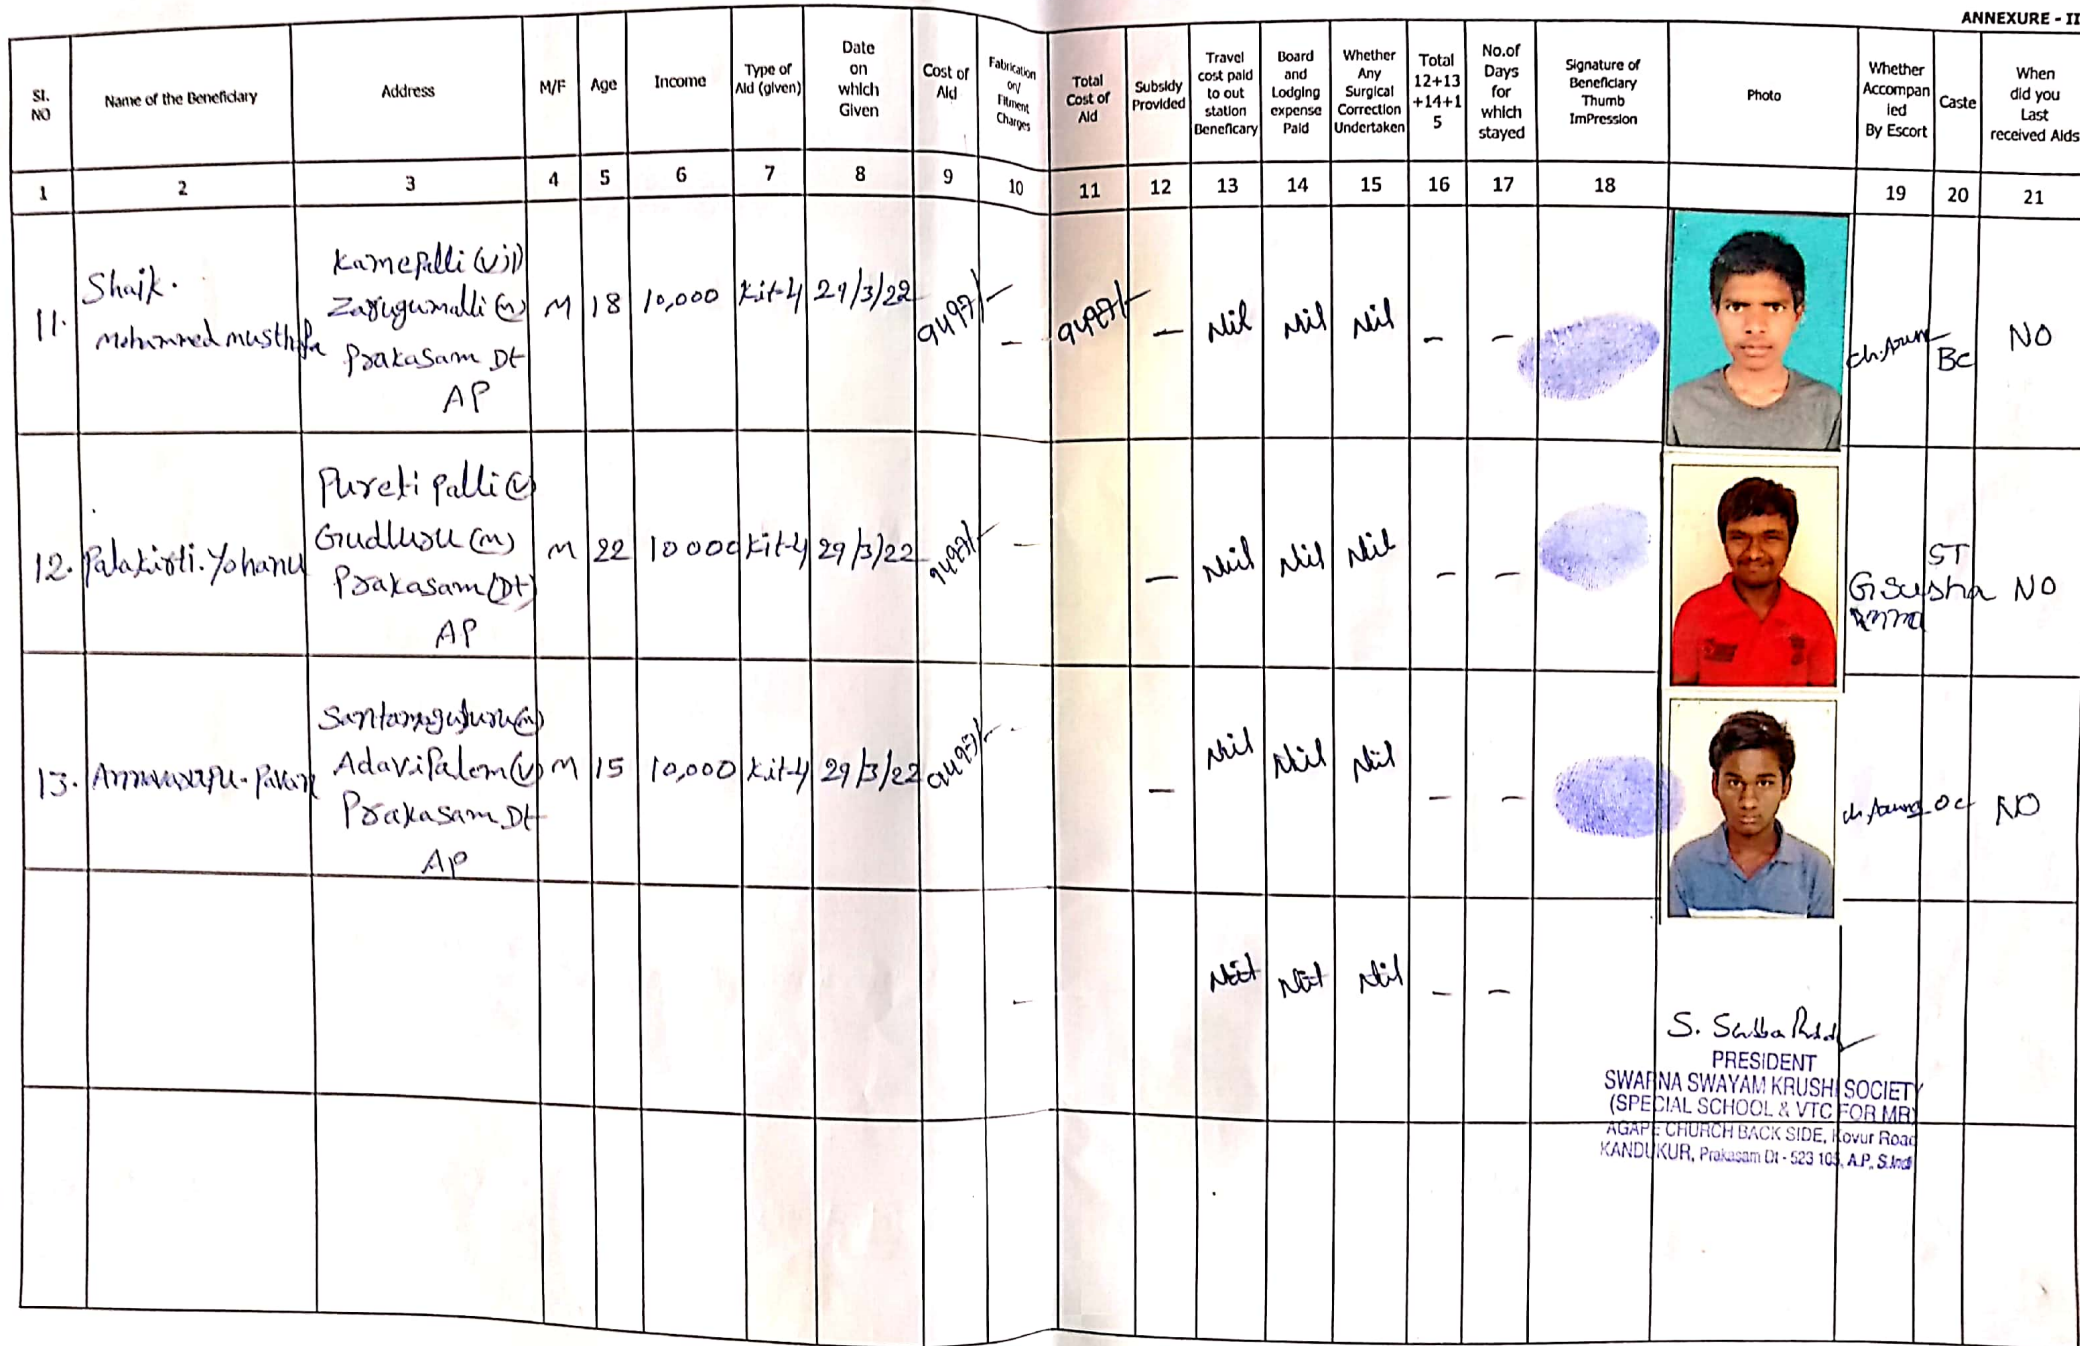 ANNEXURE - II
Sl. NO
Name of the Beneficiary
Address
M/F
Age
Income
Type of Aid (given)
Date on which Given
Cost of Aid
Fabrication on/ Fitment Charges
Total Cost of Aid
Subsidy Provided
Travel cost paid to out station Beneficary
Board and Lodging expense Paid
Whether Any Surgical Correction Undertaken
Total 12+13+14+15
No.of Days for which stayed
Signature of Beneficiary Thumb ImPression
Photo
Whether Accompan ied By Escort
Caste
When did you Last received Aids
1 2 3 4 5 6 7 8 9 10 11 12 13 14 15 16 17 18 19 20 21
11.
Shaik.
Mohammed musthfa
Kamepalli (Vil)
Zarugumalli (m)
Prakasam Dt
AP
M 18 10,000 Kit-4 29/3/22 9497/- - 9497/- - Nil Nil Nil - - ch.Arun BC NO
12. Palakirti.Yohanu
Pureti palli (V)
Gudluru (m)
Prakasam (Dt)
AP
M 22 10000 Kit-4 29/3/22 9497/- - - Nil Nil Nil - - G.Susha ST NO
13.
Adavipalem (V)
Prakasam Dt
AP
M 15 10,000 Kit-4 29/3/22 9497/- - - Nil Nil Nil - - OC NO
- Nil Nil Nil - -
S. Subba
PRESIDENT
SWARNA SWAYAM KRUSHI SOCIETY
(SPECIAL SCHOOL & VTC FOR MR)
AGAPE CHURCH BACK SIDE, Kovur Road
KANDUKUR, Prakasam Dt - 523 105, A.P., S.Ind